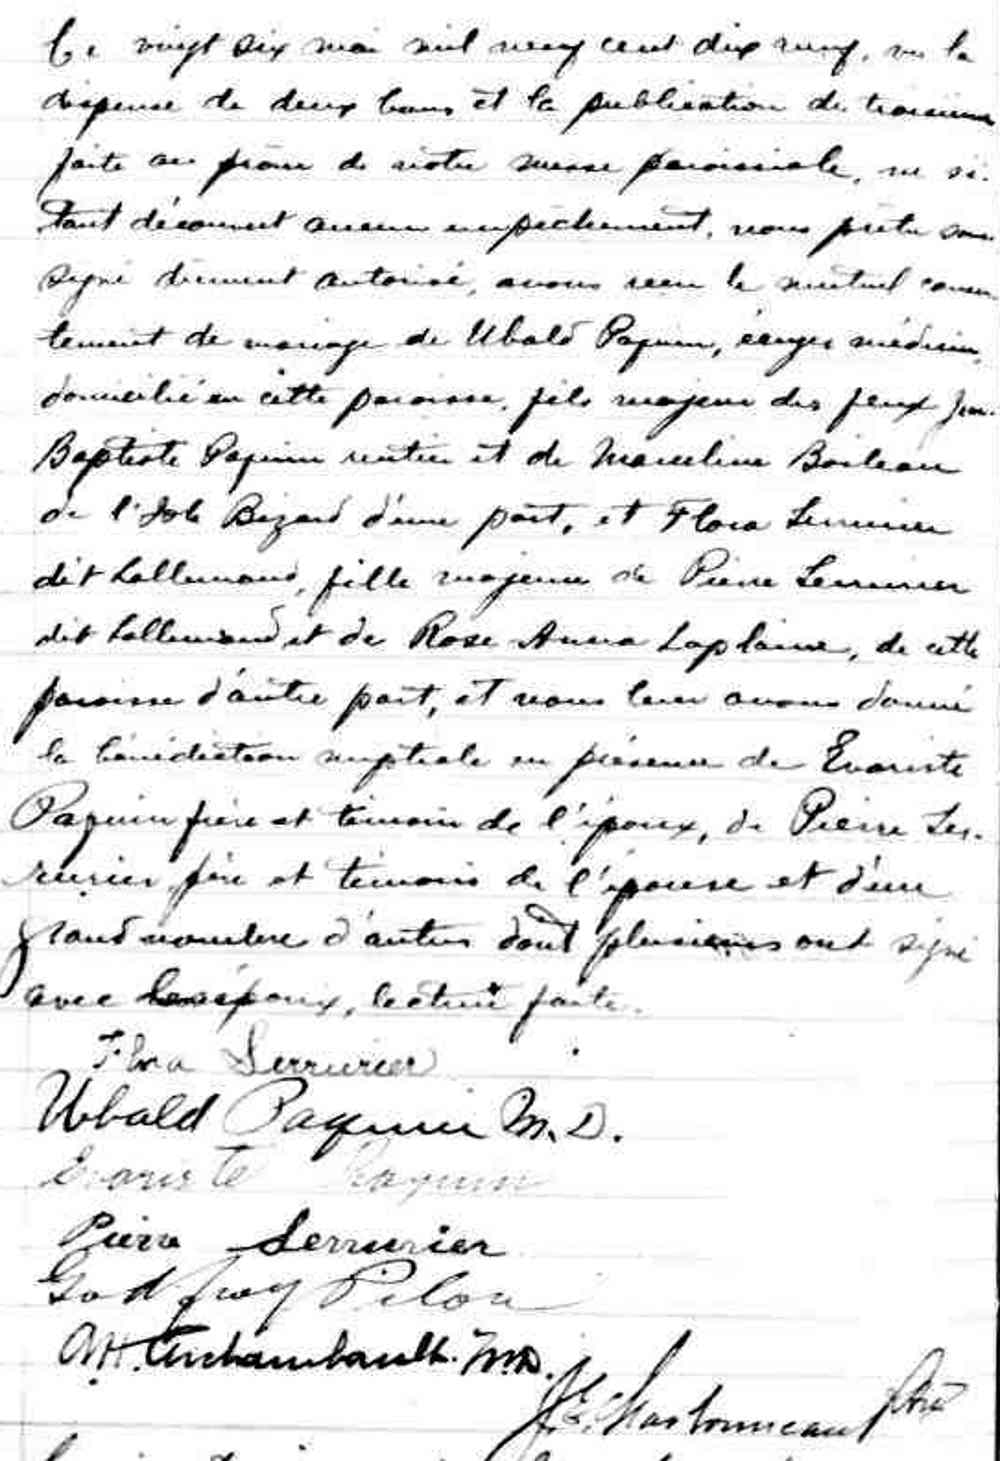 Ce vingt six mai mil neuf cent dix neuf, vu la
dispense de deux bans et la publication du troisième
faite au prône de notre messe paroissiale, ne s'é-
tant découvert aucun empêchement, nous prêtre sous-
signé dûment autorisé, avons reçu le mutuel consen-
tement de mariage de Ubald Paquin, écuyer médecin,
domicilié en cette paroisse, fils majeur des feux Jean-
Baptiste Paquin rentier et de Marceline Boileau
de l'Isle Bizard d'une part, et Flora Serrurier
dit Lallemand, fille majeure de Pierre Serrurier
dit Lallemand et de Rose Anna Laplaine, de cette
paroisse d'autre part, et nous leur avons donné
la bénédiction nuptiale en présence de Evariste
Paquin frère et témoin de l'époux, de Pierre Ser-
rurier père et témoin de l'épouse et d'un
grand nombre d'autres dont plusieurs ont signé
avec les époux, lecture faite.
Flora Serrurier
Ubald Paquin M.D.
Evariste Paquin
Pierre Serrurier
Godfroy Pilon
A.H. Archambault M.D.
J.E. Charbonneau ptre